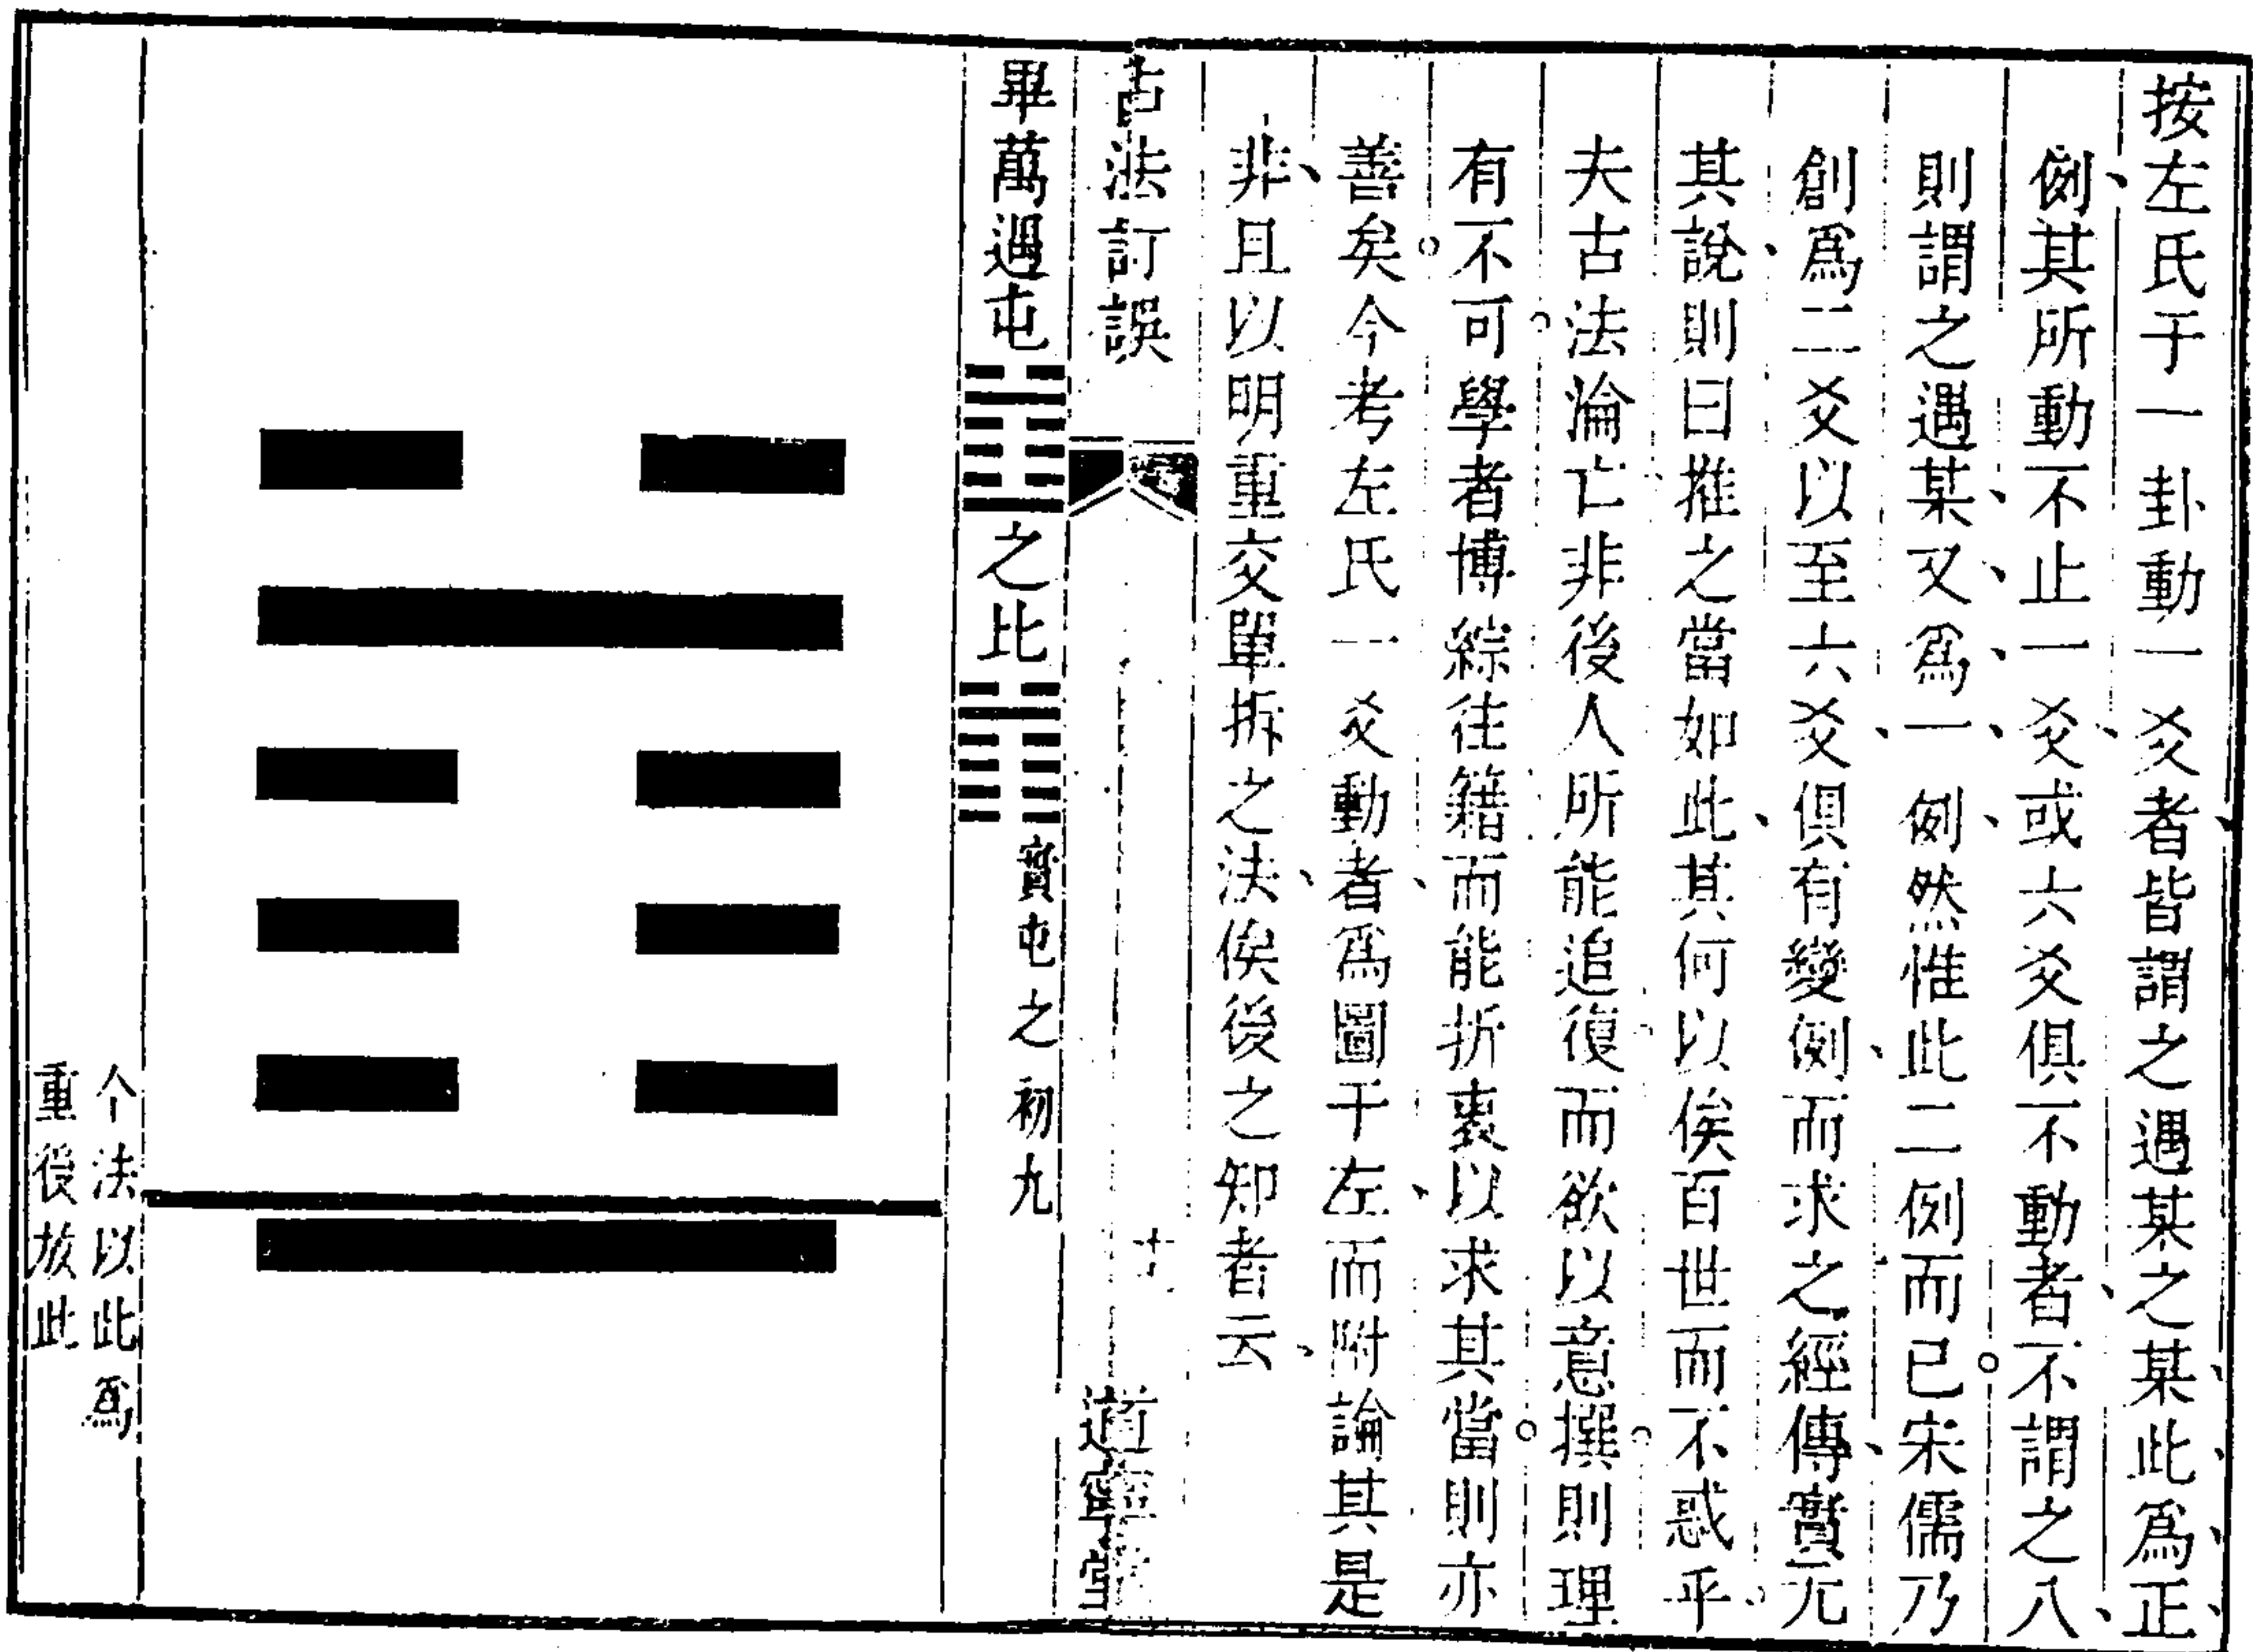 按左氏于一卦動一爻者皆謂之遇某之某此爲正
例其所動不止一爻或六爻俱不動者不謂之八
則謂之遇某又爲一例然惟此二例而已宋儒乃
創爲二爻以至六爻俱有變例而求之經傳實无
其說則曰推之當如此其何以俟百世而不惑乎
夫古法淪亡非後人所能追復而欲以意撰則理
有不可學者博綜往籍而能折衷以求其當則亦
善矣今考左氏一爻動者爲圖于左而附論其是
非且以明重交單拆之法俟後之知者云
古法訂誤
畢萬遇屯之比實屯之初九
今法以此爲
重後放此